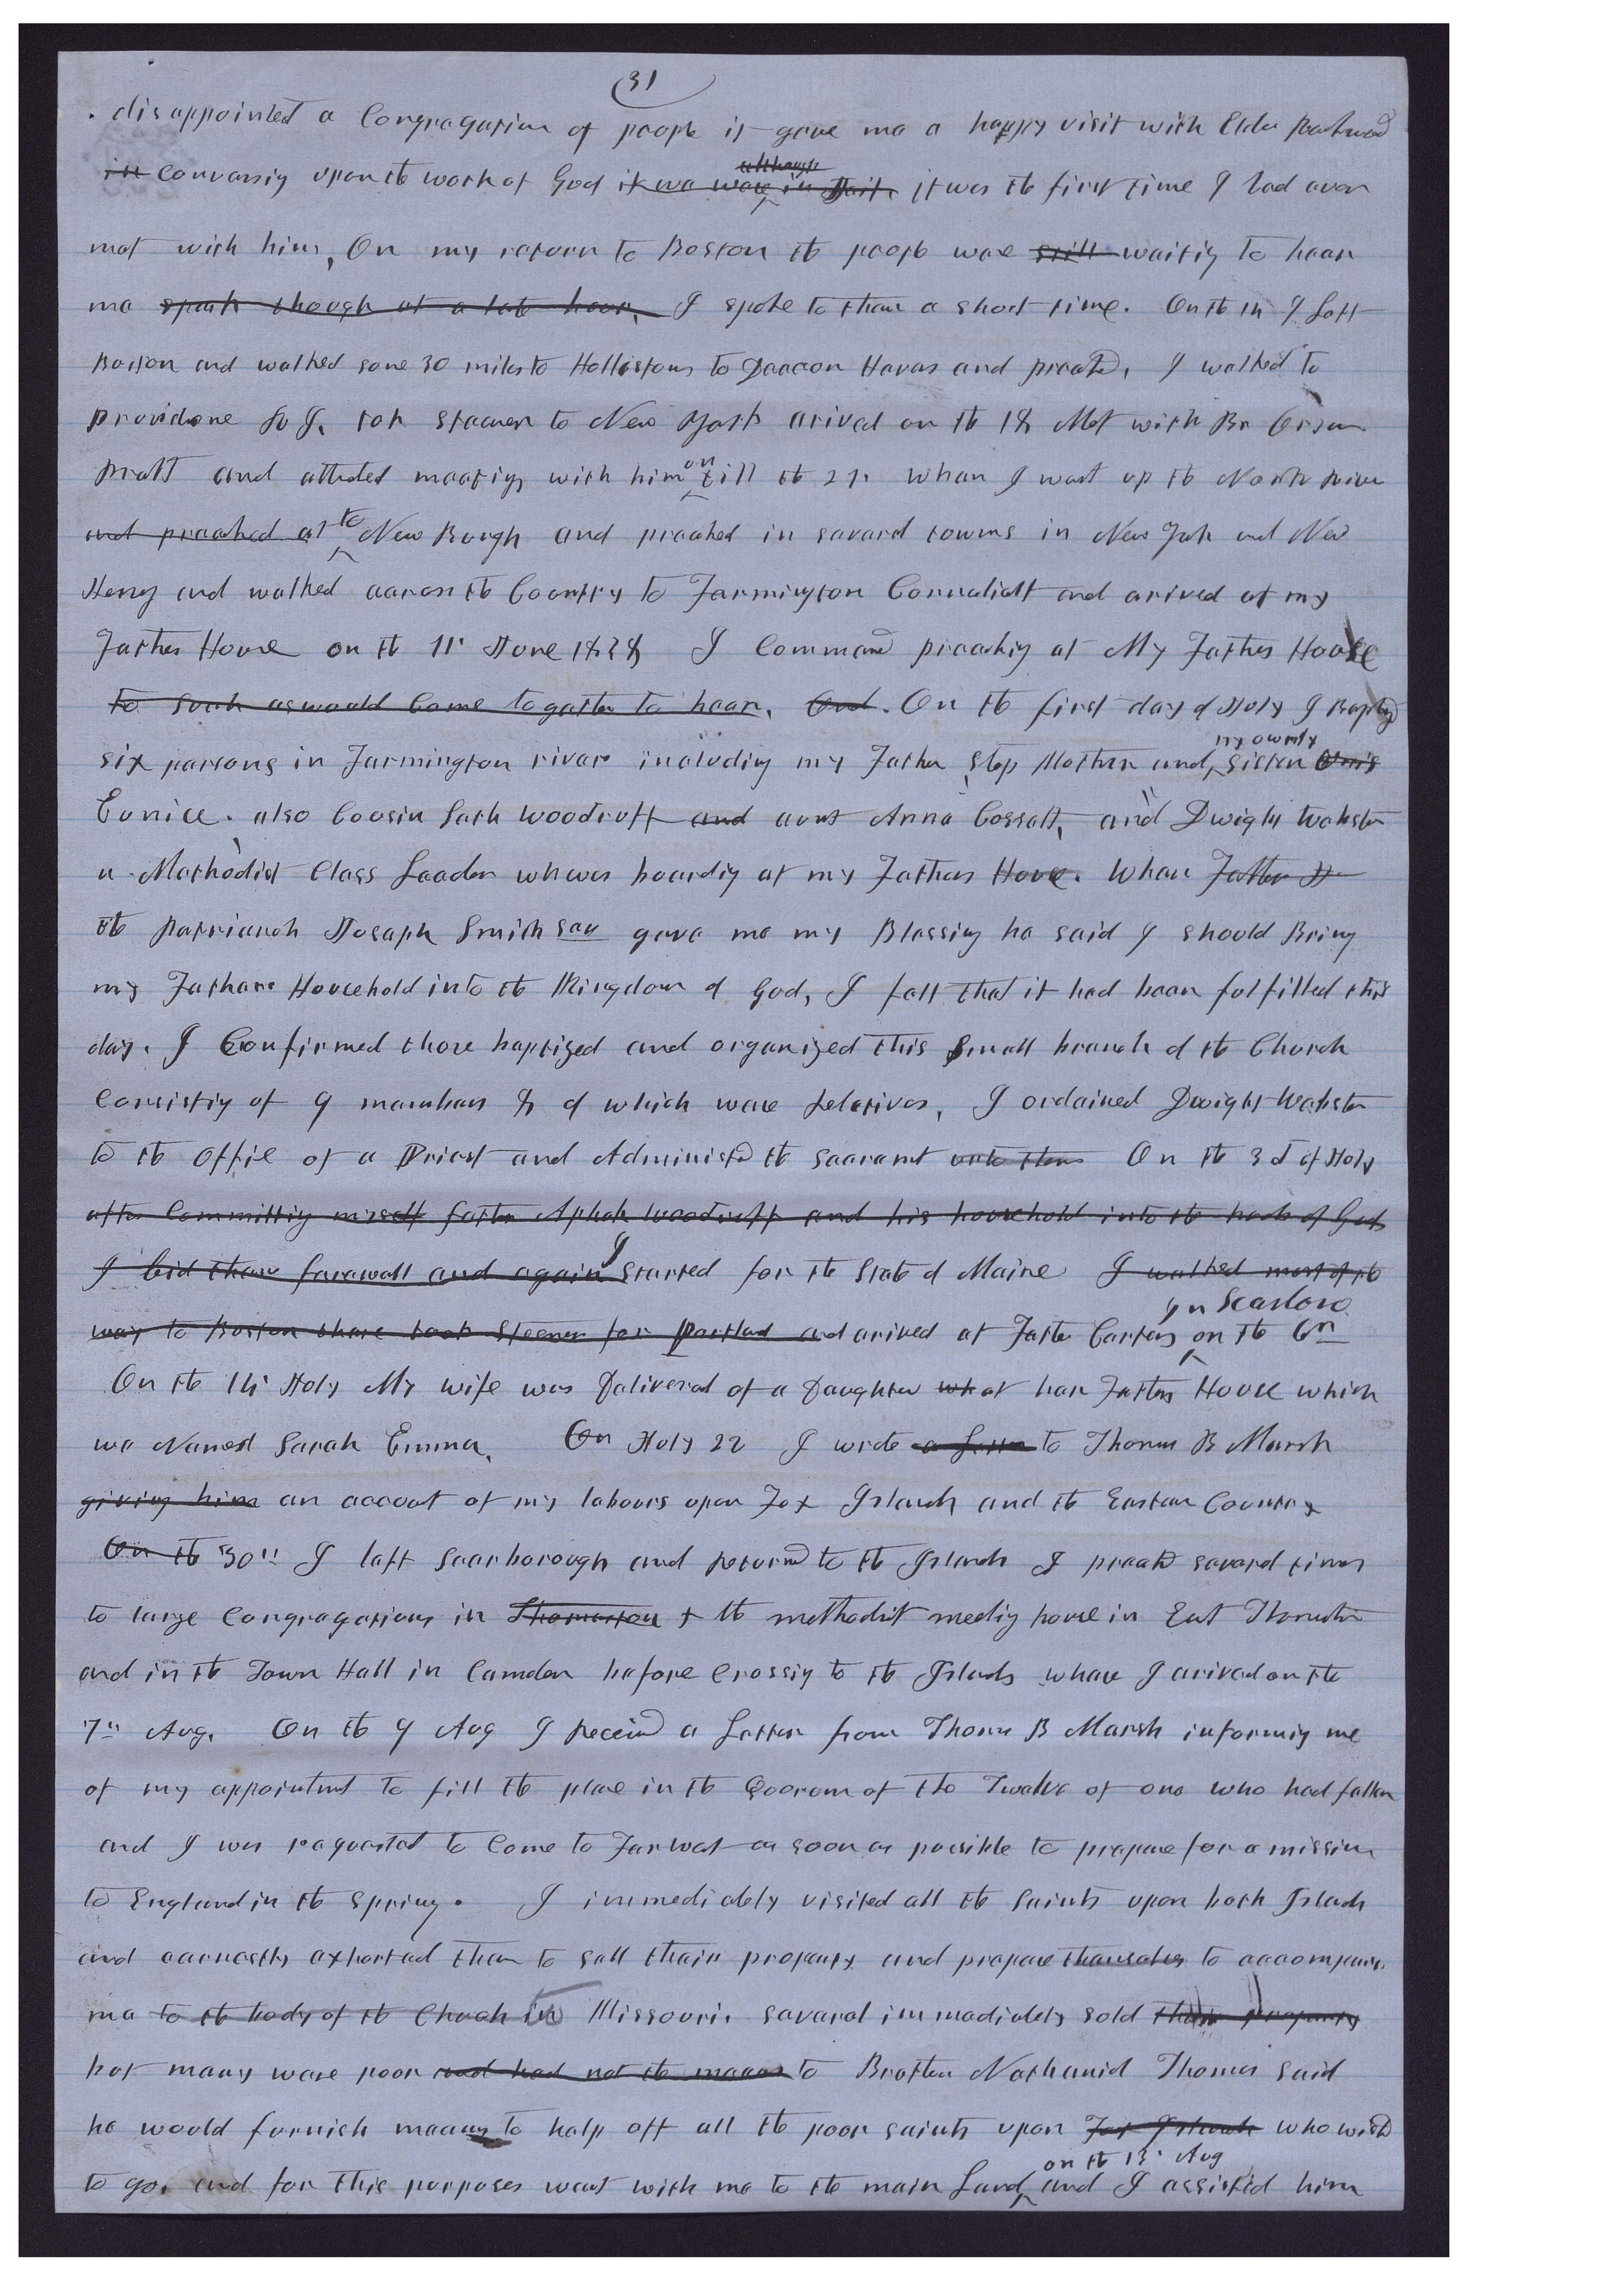 31
disappointed a Congregation of people it gave me a happy visit with Elder
in Conversig upon the work of God it we were in although it was the first time I had ever
met with him, On my return to Boston the people were still waitig to hear
me speak though at a late hour, I spoke to them a short time. On the I left
Boston and walked some 30 miles to Hollistons to Deacon Havens and preached, I walked to
providence R. I. tok steamer to New York arived on the 18 Met with Br Orson
Pratt and attended meetigs with him on till the 21. when I went up the North River
and preached at to New Burgh and preached in several towns in New York and New
Jersey and walked across the Country to Farmington Connecticutt and arived at my
Fathers House on the 11th June 1838 I Commenced preachig at My Fathers House
to such as would Come together to hear, And. On the first day of July I Baptized
six persons in Farmington river including my Father, Step Mother and my ownly sister
Eunice. also Cousin Seth Woodruff and aunt Anna Cossett, and Dwight Webster
a Methodist Class Leader who was boardig at my Fathers House. When Father
the Patriarch Joseph Smith sen gave me my Blessing he said I should Bring
my Fathers Household into the Kingdom of God, I felt that it had been fulfilled this
day. I Confirmed those baptized and organized this small branch of the Church
Consistig of 9 members 8 of which were Relatives, I ordained Dwight Webster
to the Office of a Priest and Administed the sacrament unto them On the 3d of July
after Committig myself father Aphek Woodruff and his household into the hands of God
I bid them farewell and again I started for the State of Maine I walked most of the
way to Boston there took Steemer for Portland and arived at Father Carters in Scarboro on the 6th
On the 14th July My wife was Delivered of a Daughter at her Fathers House which
we Named Sarah Emma. On July 22 I wrote a letter to Thomas B Marsh
giving him an account of my labours upon Fox Islands and the Eastern Country
On the 30th I left Scarborough and returned to the Islands I preached several times
to large Congregations in Thomaston & the methodist meetig house in East Thomaston
and in the Town Hall in Camden before Crossig to the Islands where I arived on the
7th Aug. On the 9 Aug I Received a Letter from Thomas B Marsh informig me
of my appointment to fill the place in the Quorum of the Twelve of one who had fallen
and I was requested to Come to Far West as soon as possible to prepare for a mission
to England in the spring. I immediately visited all the Saints upon both Islands
and earnestly exhorted them to sell their property and prepare themselves to accompany
me to the body of the Church in to Missouri. several immediately sold their property
but many were poor and had not the means to Brother Nathaniel Thomas said
he would furnish means to help off all the poor saints upon Fox Islands who wished
to go, and for this purposes went with me to the main Land on the 13th Aug and I assisted him